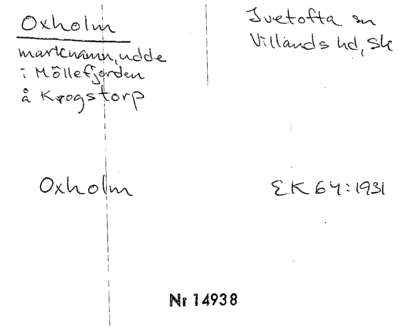 Oxholm
marknamn, udde
i Möllefjorden
å Krogstorp
Ivetofta sn
Villands hd, Sk
Oxholm
EK 64:1931
Nr 14938